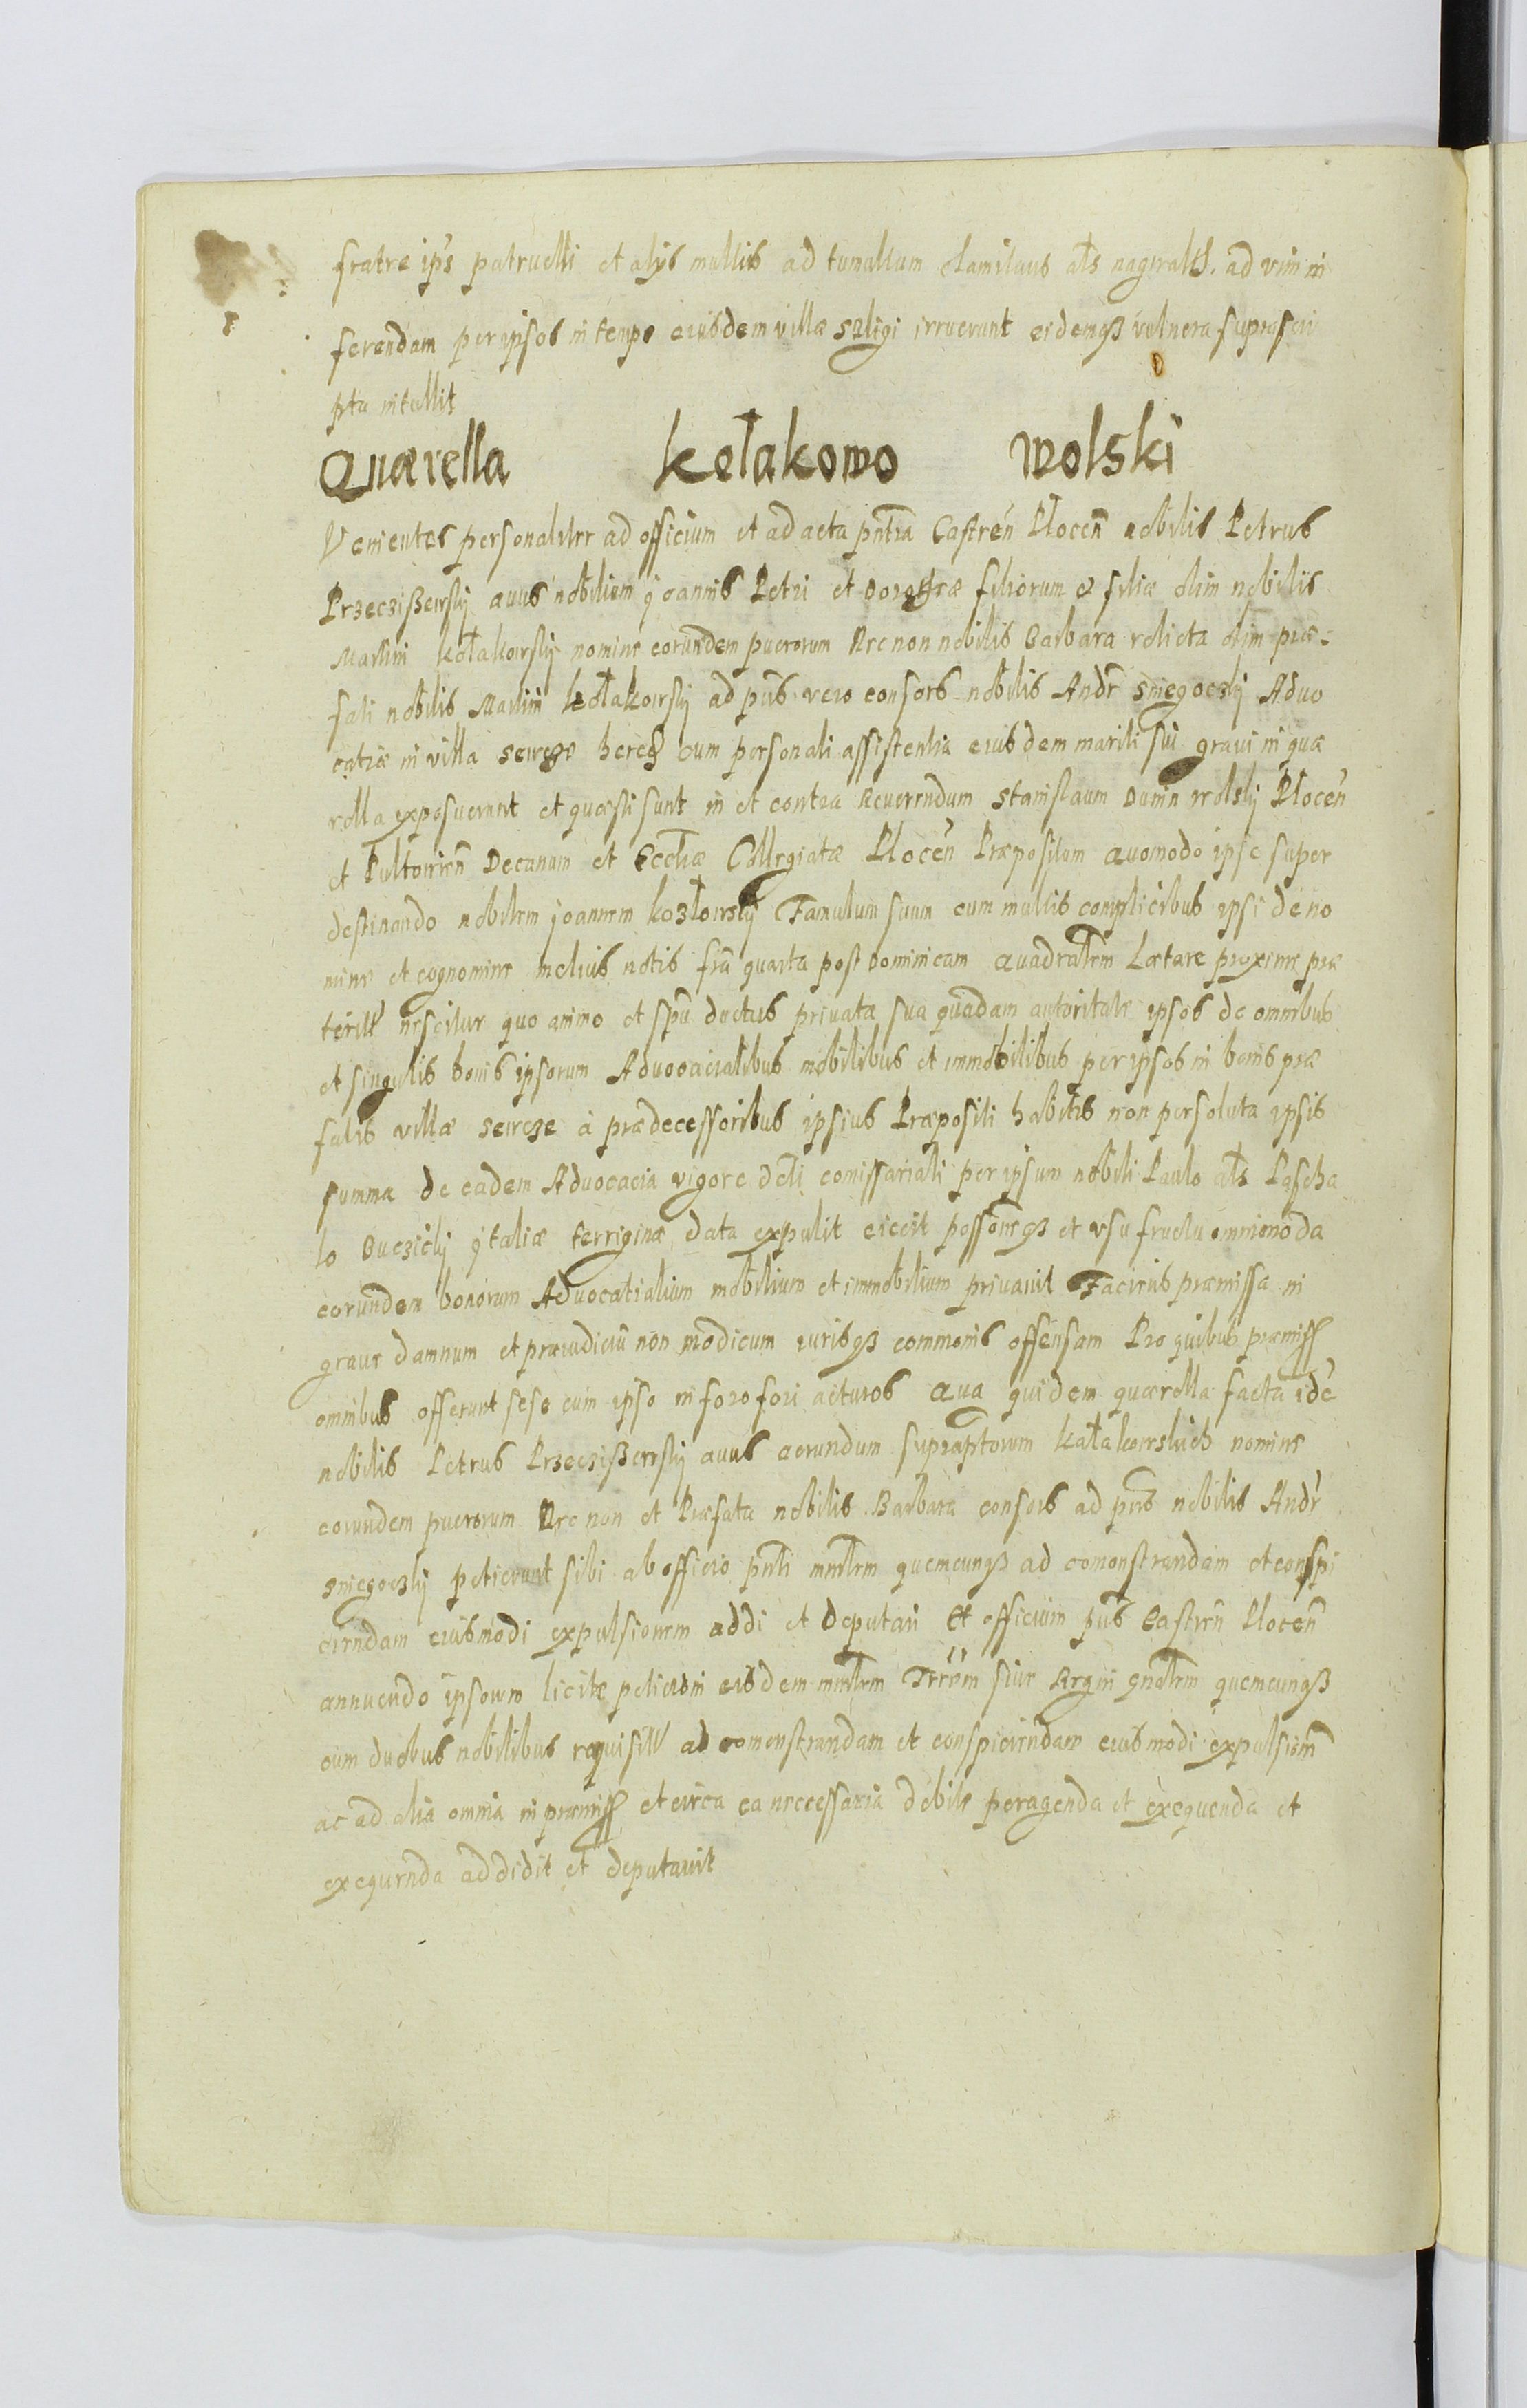 fratre ips patruelli et alys multis ad tumultum clamitans als ad vim in
ferendam per ipsos in templo eiusdem villæ Seligi irruerunt eidemqȝ vulnera suprascri
pta intullit
Quærella Kołakowo Wolski
Venientes personaliter ad officium et ad acta pntia Castren Plocen nobilis Petrus
Przecziszewskij auus nobilium Joannis Petri et Dorotheæ filiorum et filiæ olim nobilis
Martini Kołakowskij nomine eorundem puerorum Nec non nobilis Barbara relicta olim præ-
fati nobilis Martini Kołakowskij ad pns vero consors nobilis Andr Sniegoczkij Aduo
catiæ in villa heređ cum personali assistentia eiusdem mariti sui graui in quæ
rella exposuerunt et quæsti sunt in et contra Reuerendum Stanislaum Dunin Wolskij Plocen
et Pultouien Decanum et Eccliæ Collegiatæ Plocen Præpositum Quomodo ipse super
destinando nobilem Joannem Kozłowskij Famulum suum cum multis complicibus ipsi de no
mine et cognomine melius notis fria quarta post Dominicam Quadralem Lætare proxime præ
terit nescitur quo animo et spu ductus priuata sua quadam autoritate ipsos de omnibus
et singulis bonis ipsorum Aduocacialibus mobilibus et immobilibus per ipsos in bonis præ
fatis villæ à prædecessoribus ipsius Præpositi habitis non persoluta ipsis
summa de eadem Aduocacia vigore dcti comissariali per ipsum nobili Paulo als Pascha
lo Italiæ terrigenæ data expulit eiecit possoneqȝ et vsufructu omnimoda
eorundem bonorum Aduocatialium mobilium et immobilium priuauit Faciens præmissa in
graue damnum et præiudiciu non modicum iurisqȝ communis offensam Pro quibus præmiss
omnibus offerunt sese cum ipso in foro fori acturos Qua quidem quærella facta ide
nobilis Petrus Przecziszewskij auus eorundum supraptorum Kałakowskich nomine
eorundem puerorum Nec non et Præfata nobilis Barbara consors ad pns nobilis Andr
Sniegoczkij petierunt sibi ab officio pnti mnrlem quemcunqȝ ad comonstrandam et conspi
ciendam eiusmodi expulsionem addi et deputari Et officium pns Castren Plocen
annuendo ipsorum licitæ peticioni eisdem mnrlem Trrem siue Regni gnalem quemcunqȝ
cum duobus nobilibus requisitt ad comonstrandam et conspiciendam eiusmodi expulsionem
ac ad alia omnia in præmiss et circa ea necessaria debite peragenda et exequenda et
exequenda addidit et deputauit